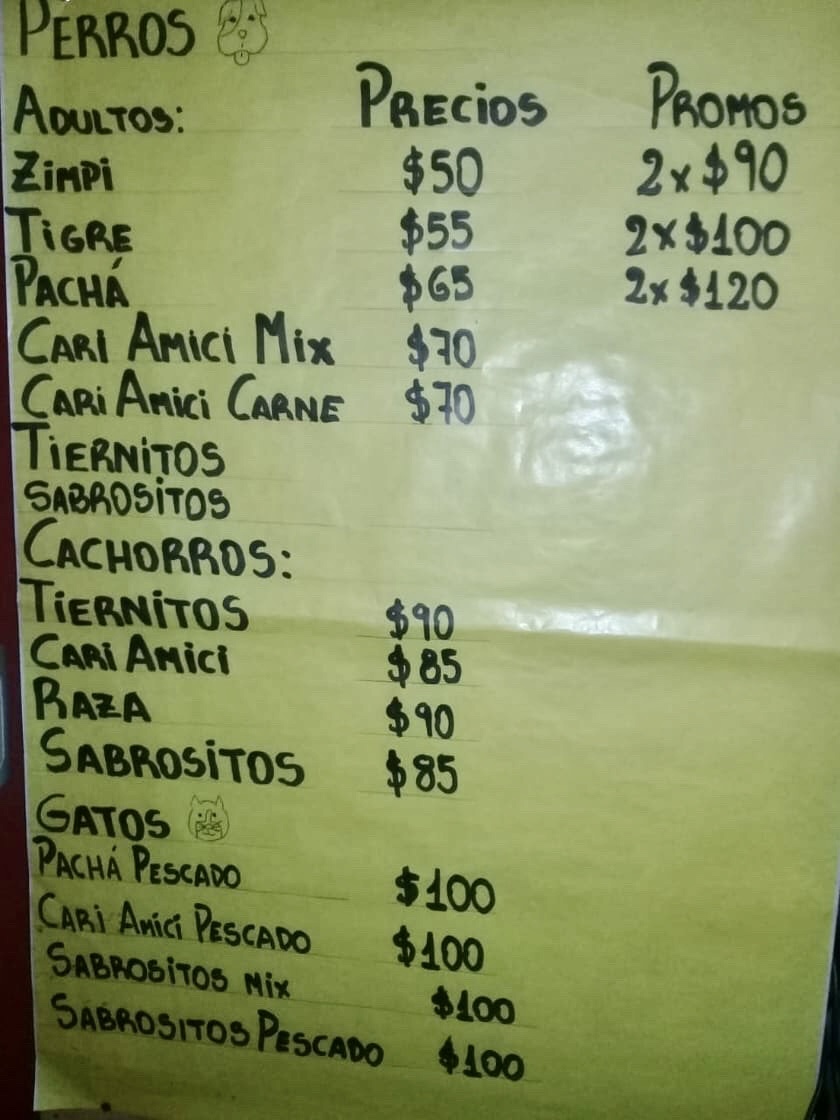 PERROS
ADULTOS: PRECIOS PROMOS
ZiMPi $50 2x$90
TiGRE $55 2x$100
PACHÁ $65 2x$120
CARi AMiCi Mix $70
CARi AMiCi CARNE $70
TiERNiTOS
SABROSiTOS
CACHORROS:
TiERNiTOS $90
CARi AMiCi $85
RAZA $90
SABROSiTOS $85
GATOS
PACHÁ PESCADO $100
CARi AMiCi PESCADO $100
SABROSiTOS Mix $100
SABROSiTOS PESCADO $100